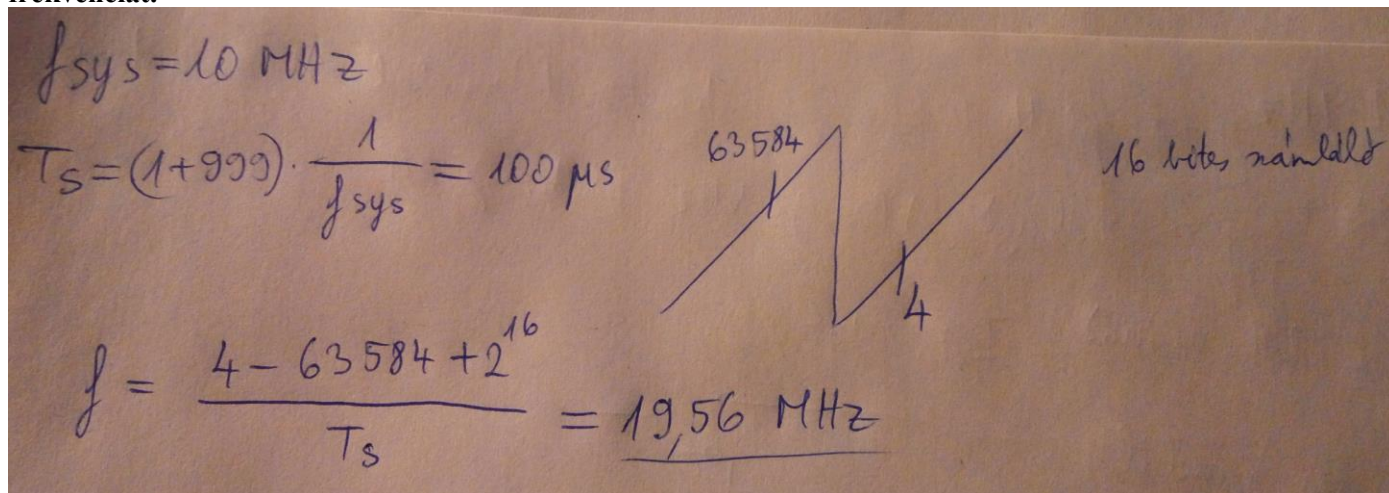 frekvenciát.
fsys = 10 MHz
Ts = (1+999) · 1 / fsys = 100 μs
63584
4
16 bites számláló
f = (4 - 63584 + 2^16) / Ts = 19,56 MHz